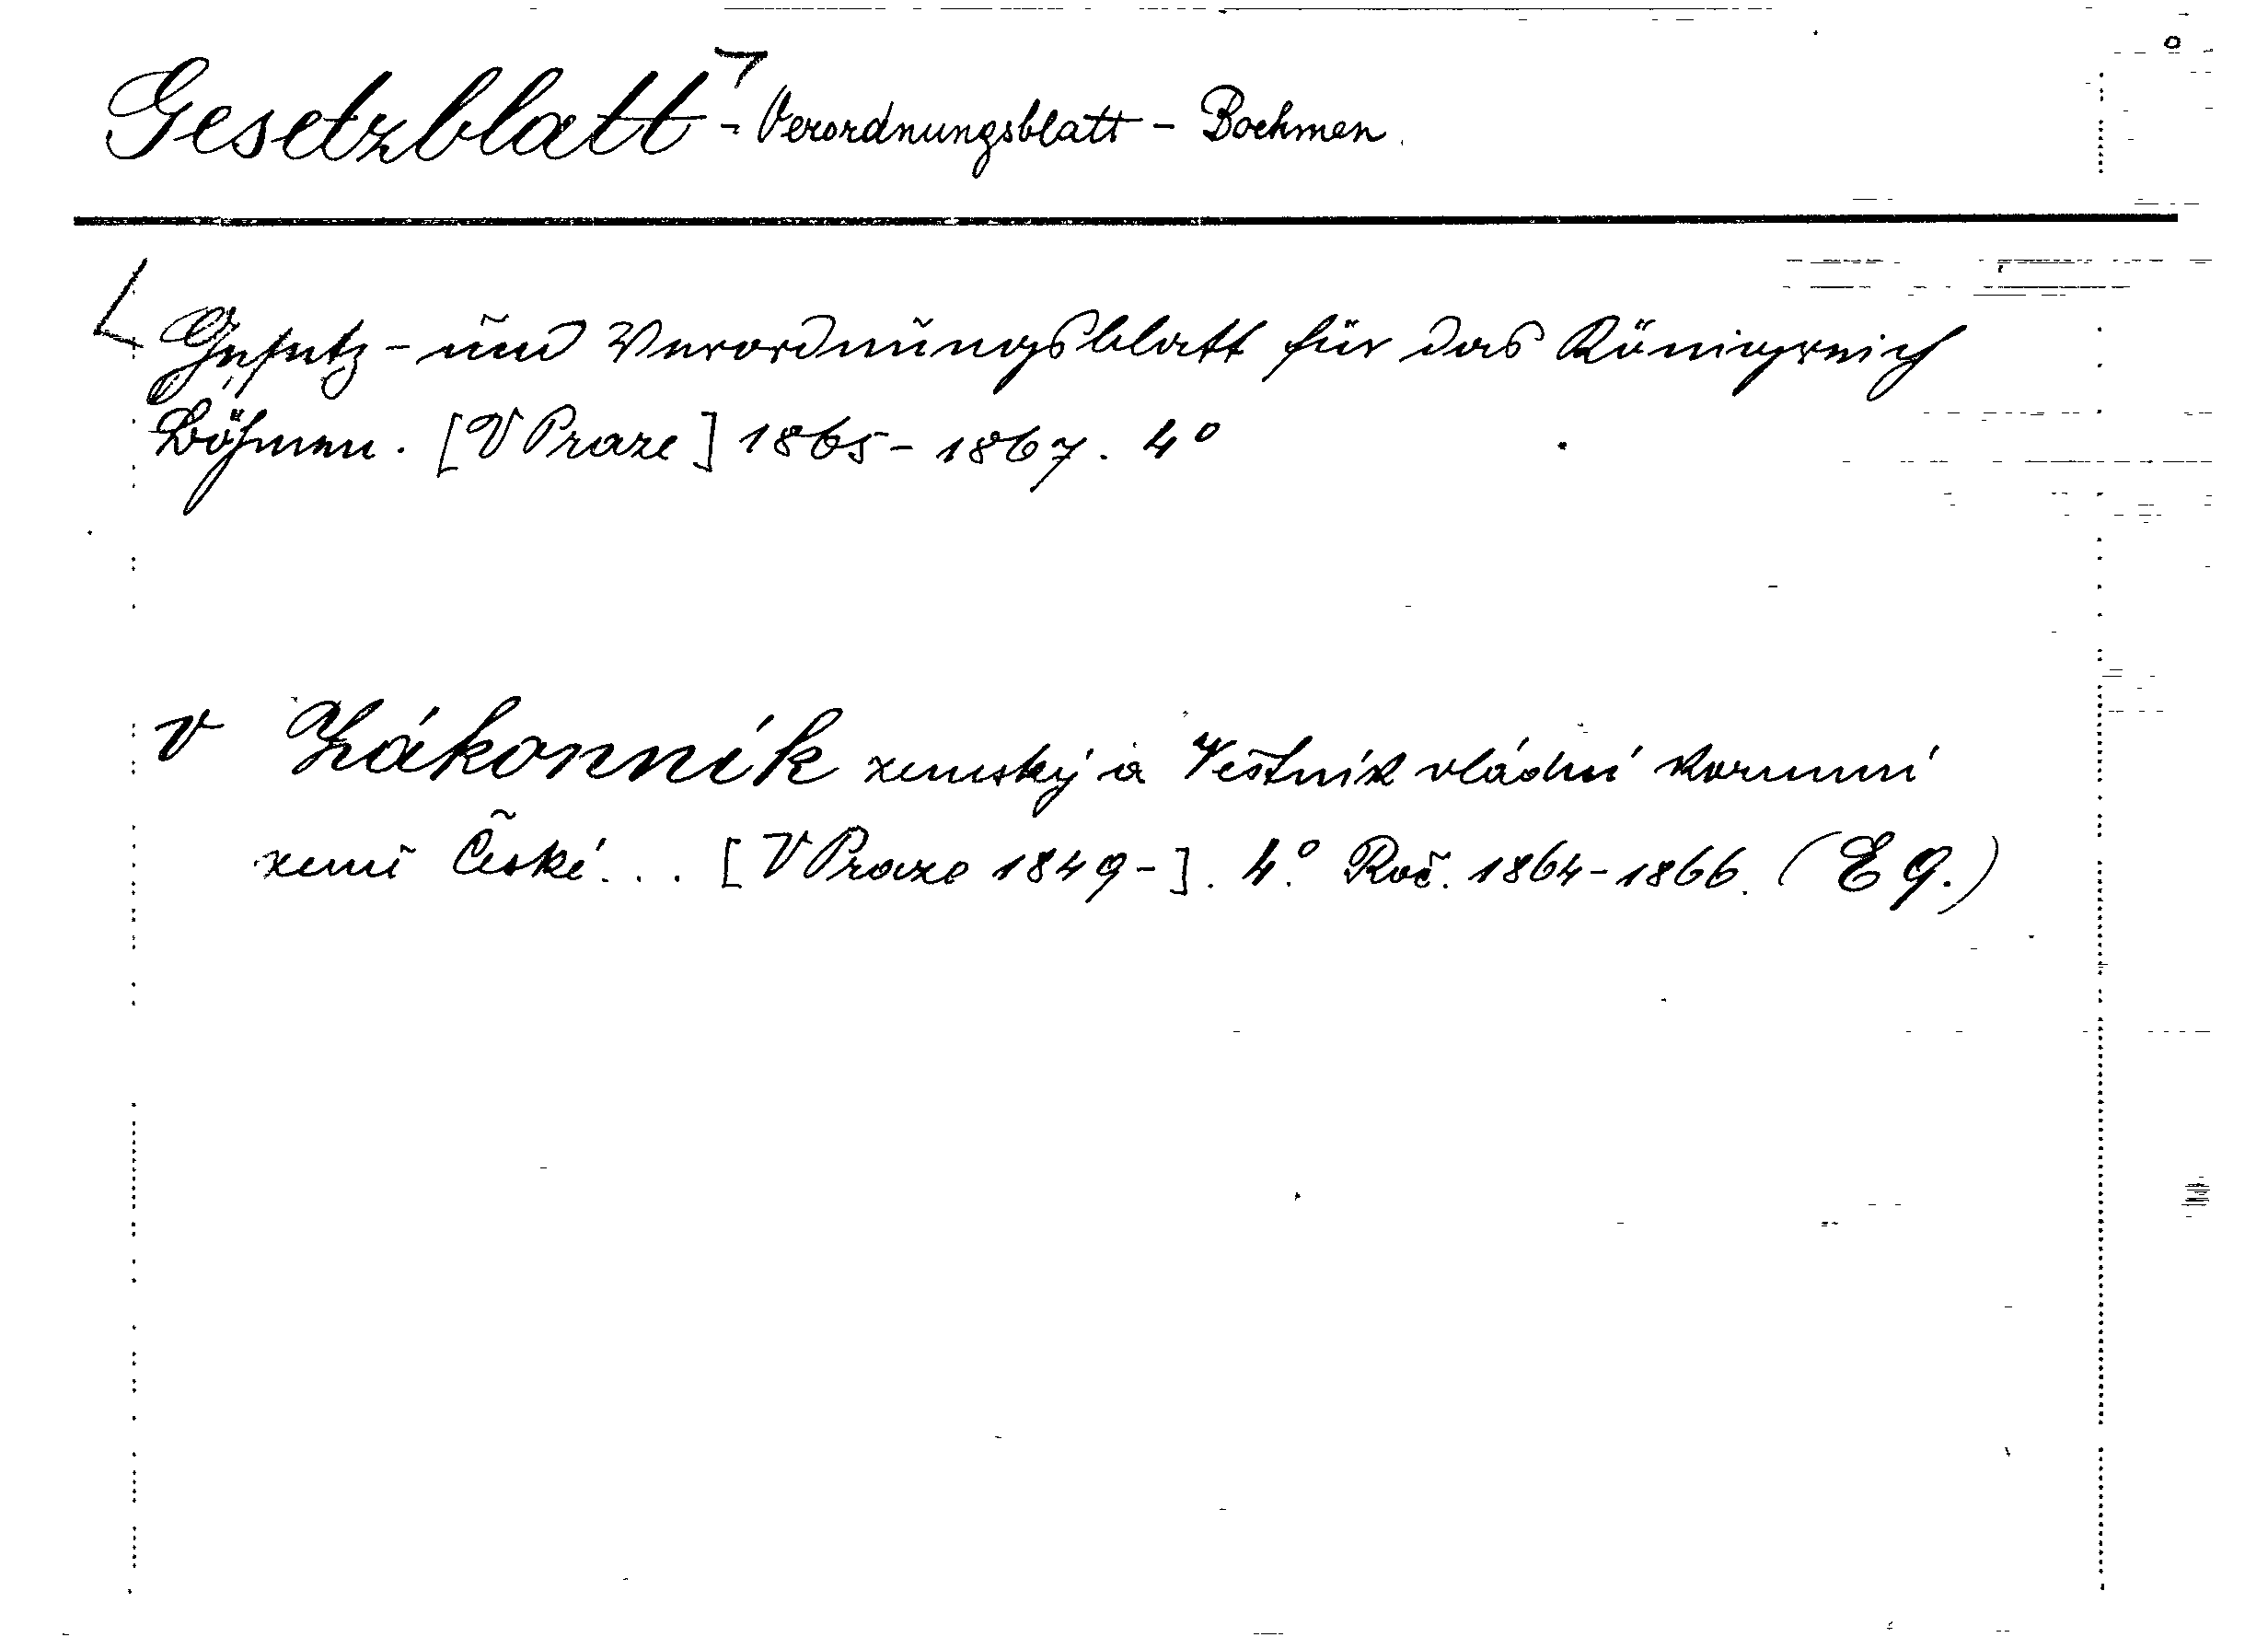 Gesetzblatt - Verordnungsblatt - Boehmen.
Gesetz- und Verordnungsblatt für das Königreich
Böhmen. [V Praze] 1865-1867. 4°
v Zákonník zemský a Věstník vládní korunní
země České... [V Praze 1849-]. 4°. Roč. 1864-1866. (E 9.)